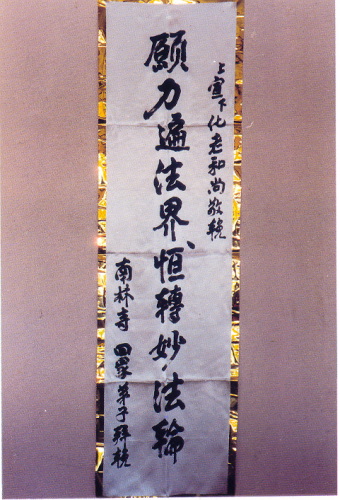 上宣下化老和尚敬輓
願力遍法界、恒轉妙法輪
南林寺 四眾弟子拜輓